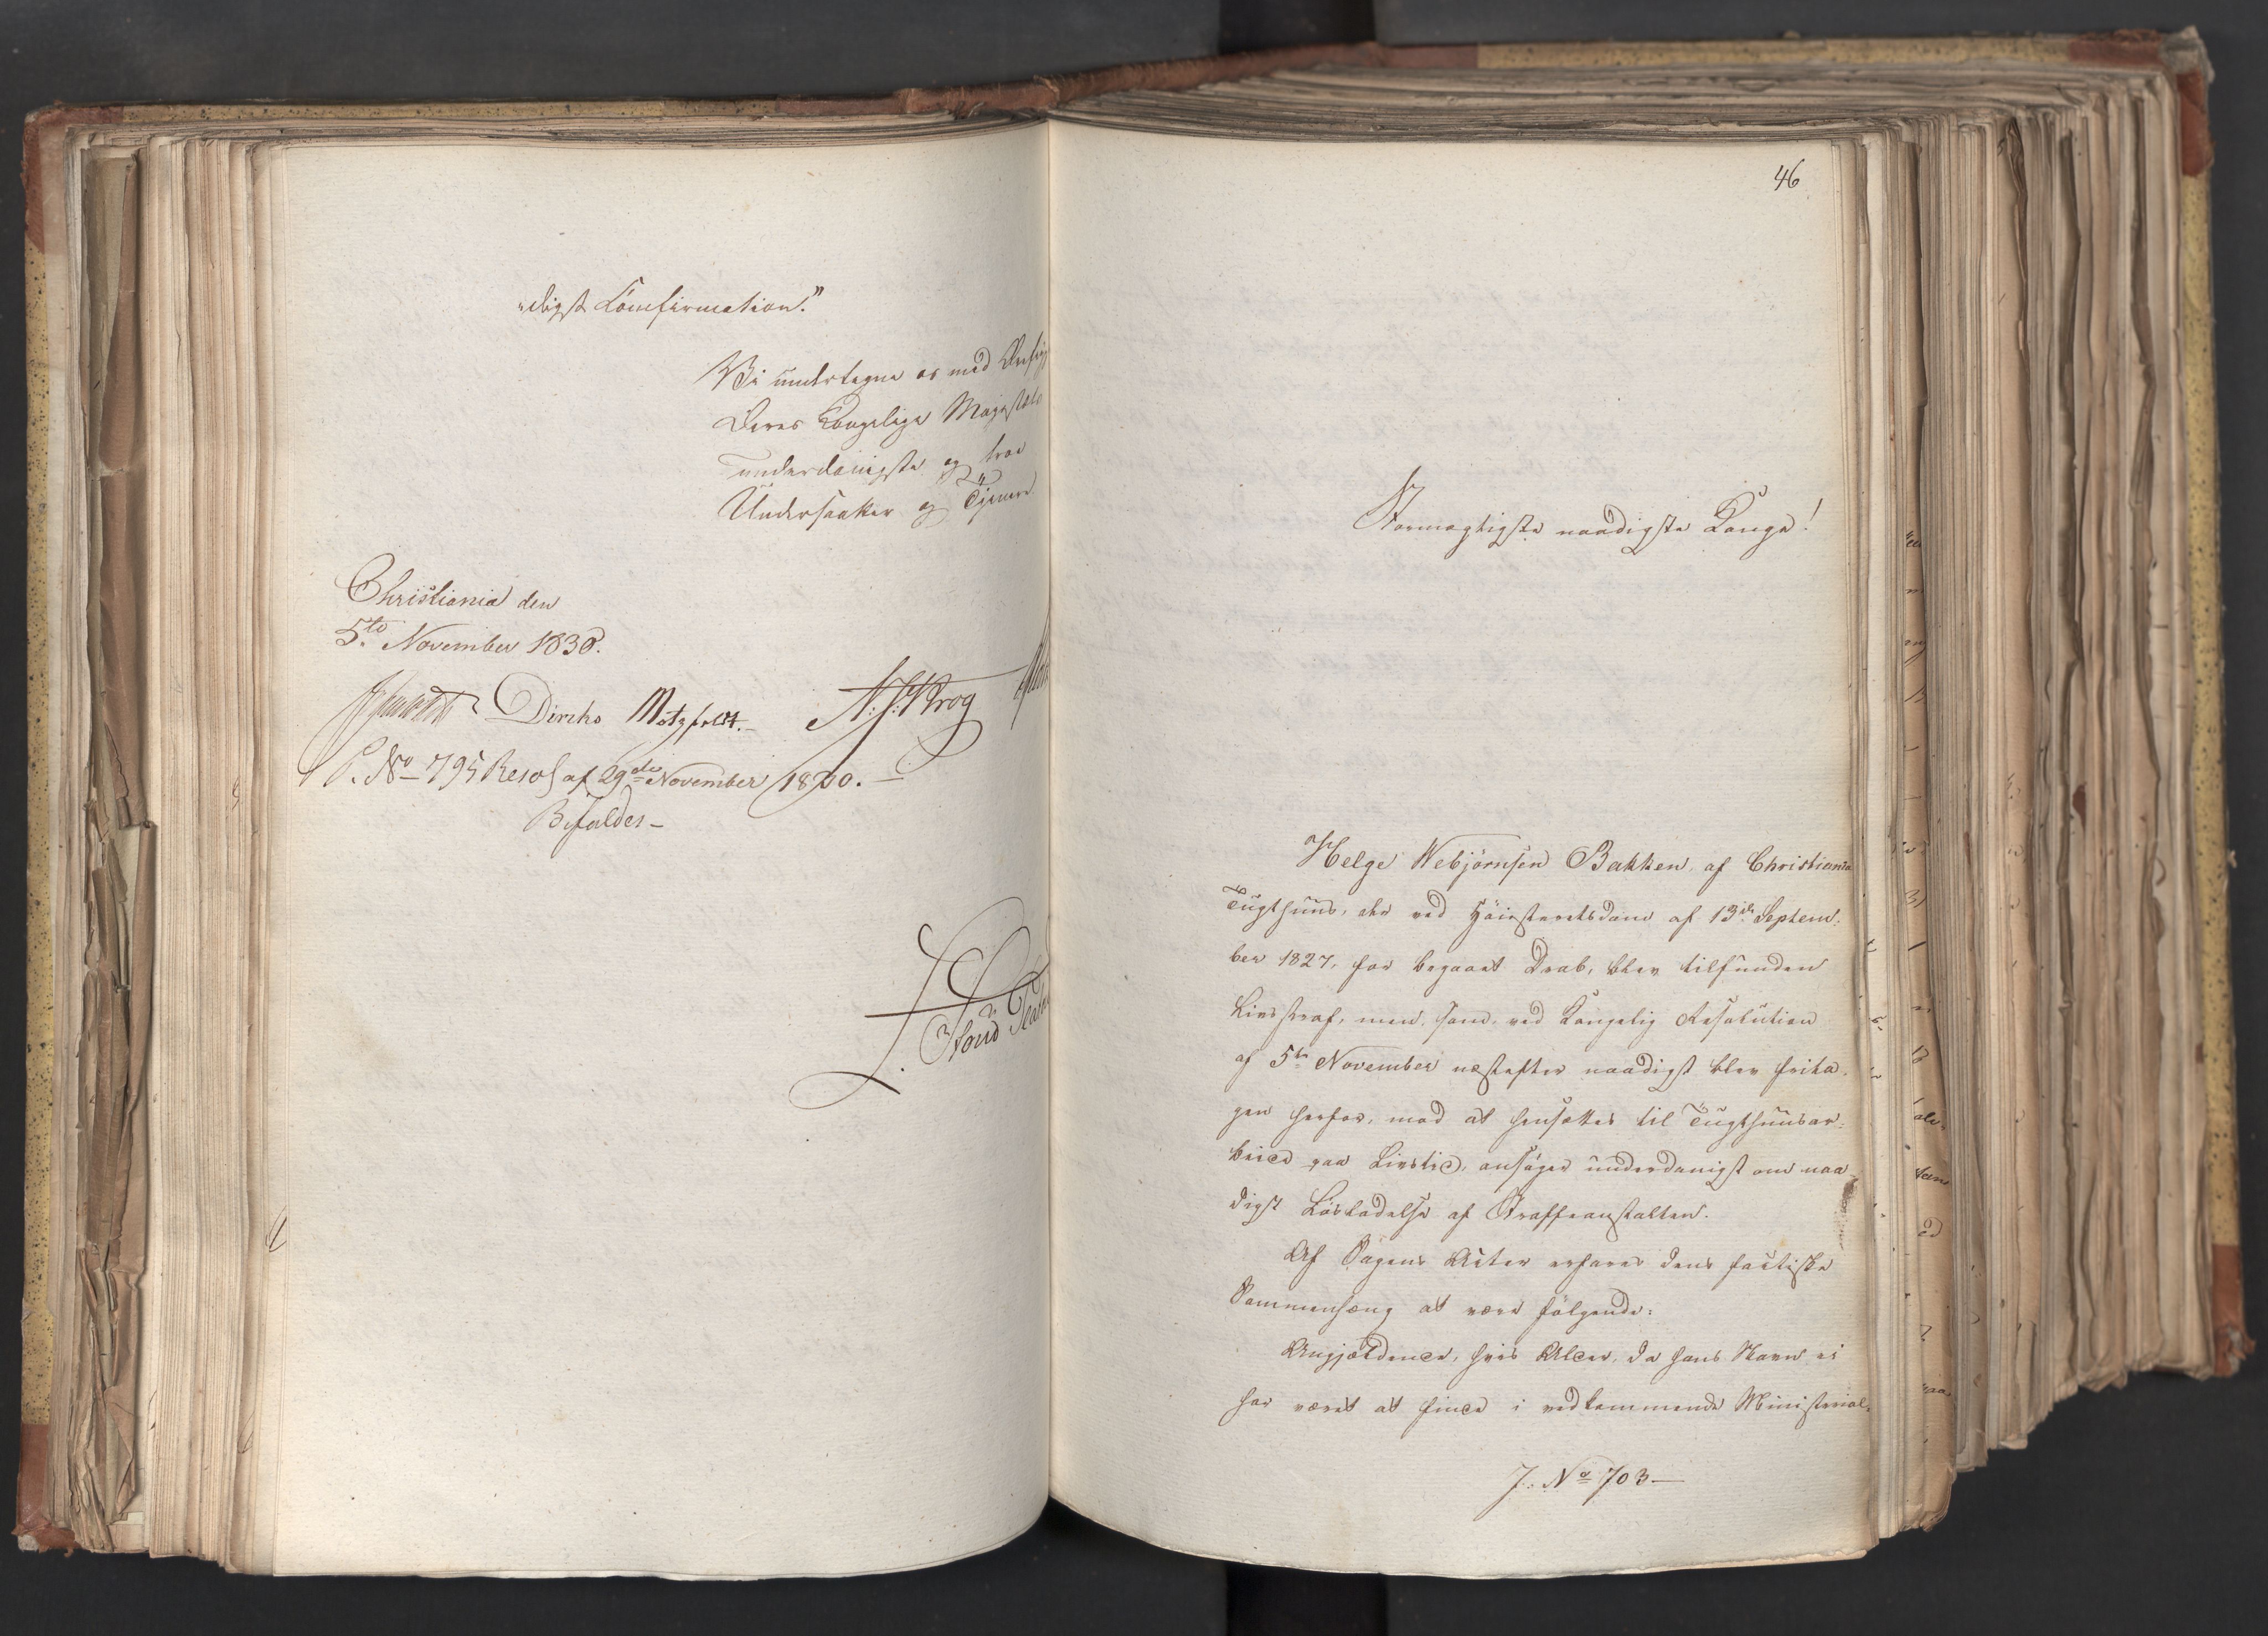 „digst Confirmation."
Vi undertegne os med
Deres Kongelige Majestæts
underdanigste og troe
Undersaatter og Tjenere
Christiania den
5te November 1830.
Diriks Motzfeldt.— N. J. Krog
P. No 795 Resol af 29de November 1830.—
Bifaldes—
46
Stormægtigste naadigste Konge!
Helge Webjørnsen Bakken, af Christiania
Tugthuus, der ved Høiesteretsdom af 13de Septem-
ber 1827, for begaaet Drab, blev tilfunden
Livsstraf, men, som, ved Kongelig Resolution
af 5te November næstefter naadigst blev frita-
gen herfor, mod at hensættes til Tugthuusar-
beide paa Livstid, ansøger underdanigst om naa-
digst Løsladelse af Straffeanstalten.
Af Sagens Acter erfares dens factiske
Sammenhæng at være følgende:
Angjældende, hvis Alder, da hans Navn ei
har været at finde i vedkommende Ministerial-
J. No 703—